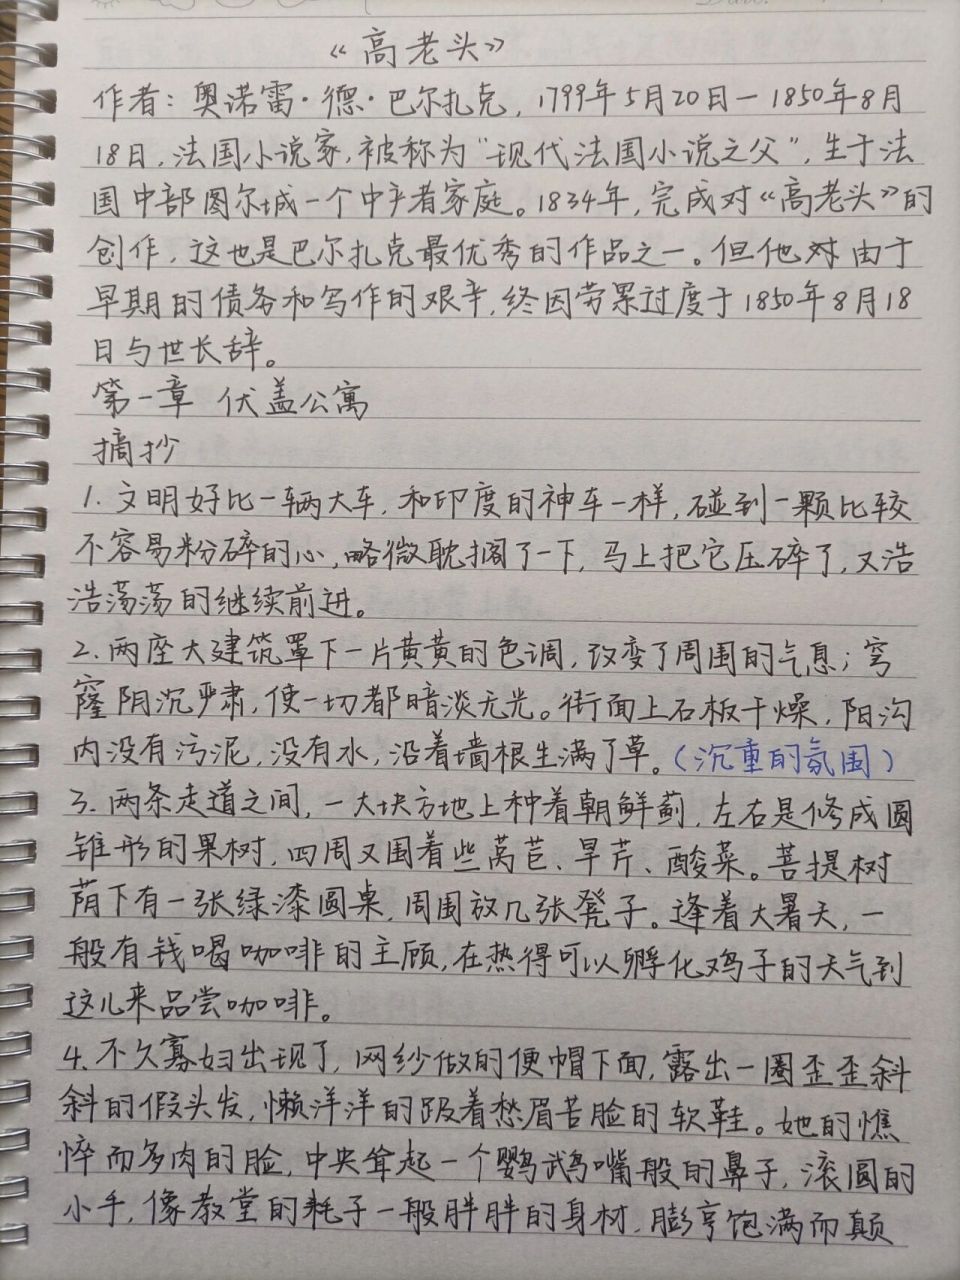 《高老头》
作者：奥诺雷·德·巴尔扎克，1799年5月20日—1850年8月
18日，法国小说家，被称为"现代法国小说之父"，生于法
国中部图尔城一个中产者家庭。1834年，完成对《高老头》的
创作，这也是巴尔扎克最优秀的作品之一。但他对由于
早期的债务和写作的艰辛，终因劳累过度于1850年8月18
日与世长辞。
第一章 伏盖公寓
摘抄
1. 文明好比一辆大车，和印度的神车一样，碰到一颗比较
不容易粉碎的心，略微耽搁了一下，马上把它压碎了，又浩
浩荡荡的继续前进。
2. 两座大建筑罩下一片黄黄的色调，改变了周围的气息；穹
窿阴沉严肃，使一切都暗淡无光。街面上石板干燥，阳沟
内没有污泥，没有水，沿着墙根生满了草。（沉重的氛围）
3. 两条走道之间，一大块方地上种着朝鲜蓟，左右是修成圆
锥形的果树，四周又围着些莴苣、旱芹、酸菜。菩提树
荫下有一张绿漆圆桌，周围放几张凳子。逢着大暑天，一
般有钱喝咖啡的主顾，在热得可以孵化鸡子的天气到
这儿来品尝咖啡。
4. 不久寡妇出现了，网纱做的便帽下面，露出一圈歪歪斜
斜的假头发，懒洋洋的趿着愁眉苦脸的软鞋。她的憔
悴而多肉的脸，中央耸起一个鹦鹉嘴般的鼻子，滚圆的
小手，像教堂的耗子一般胖胖的身材，膨亨饱满而颠